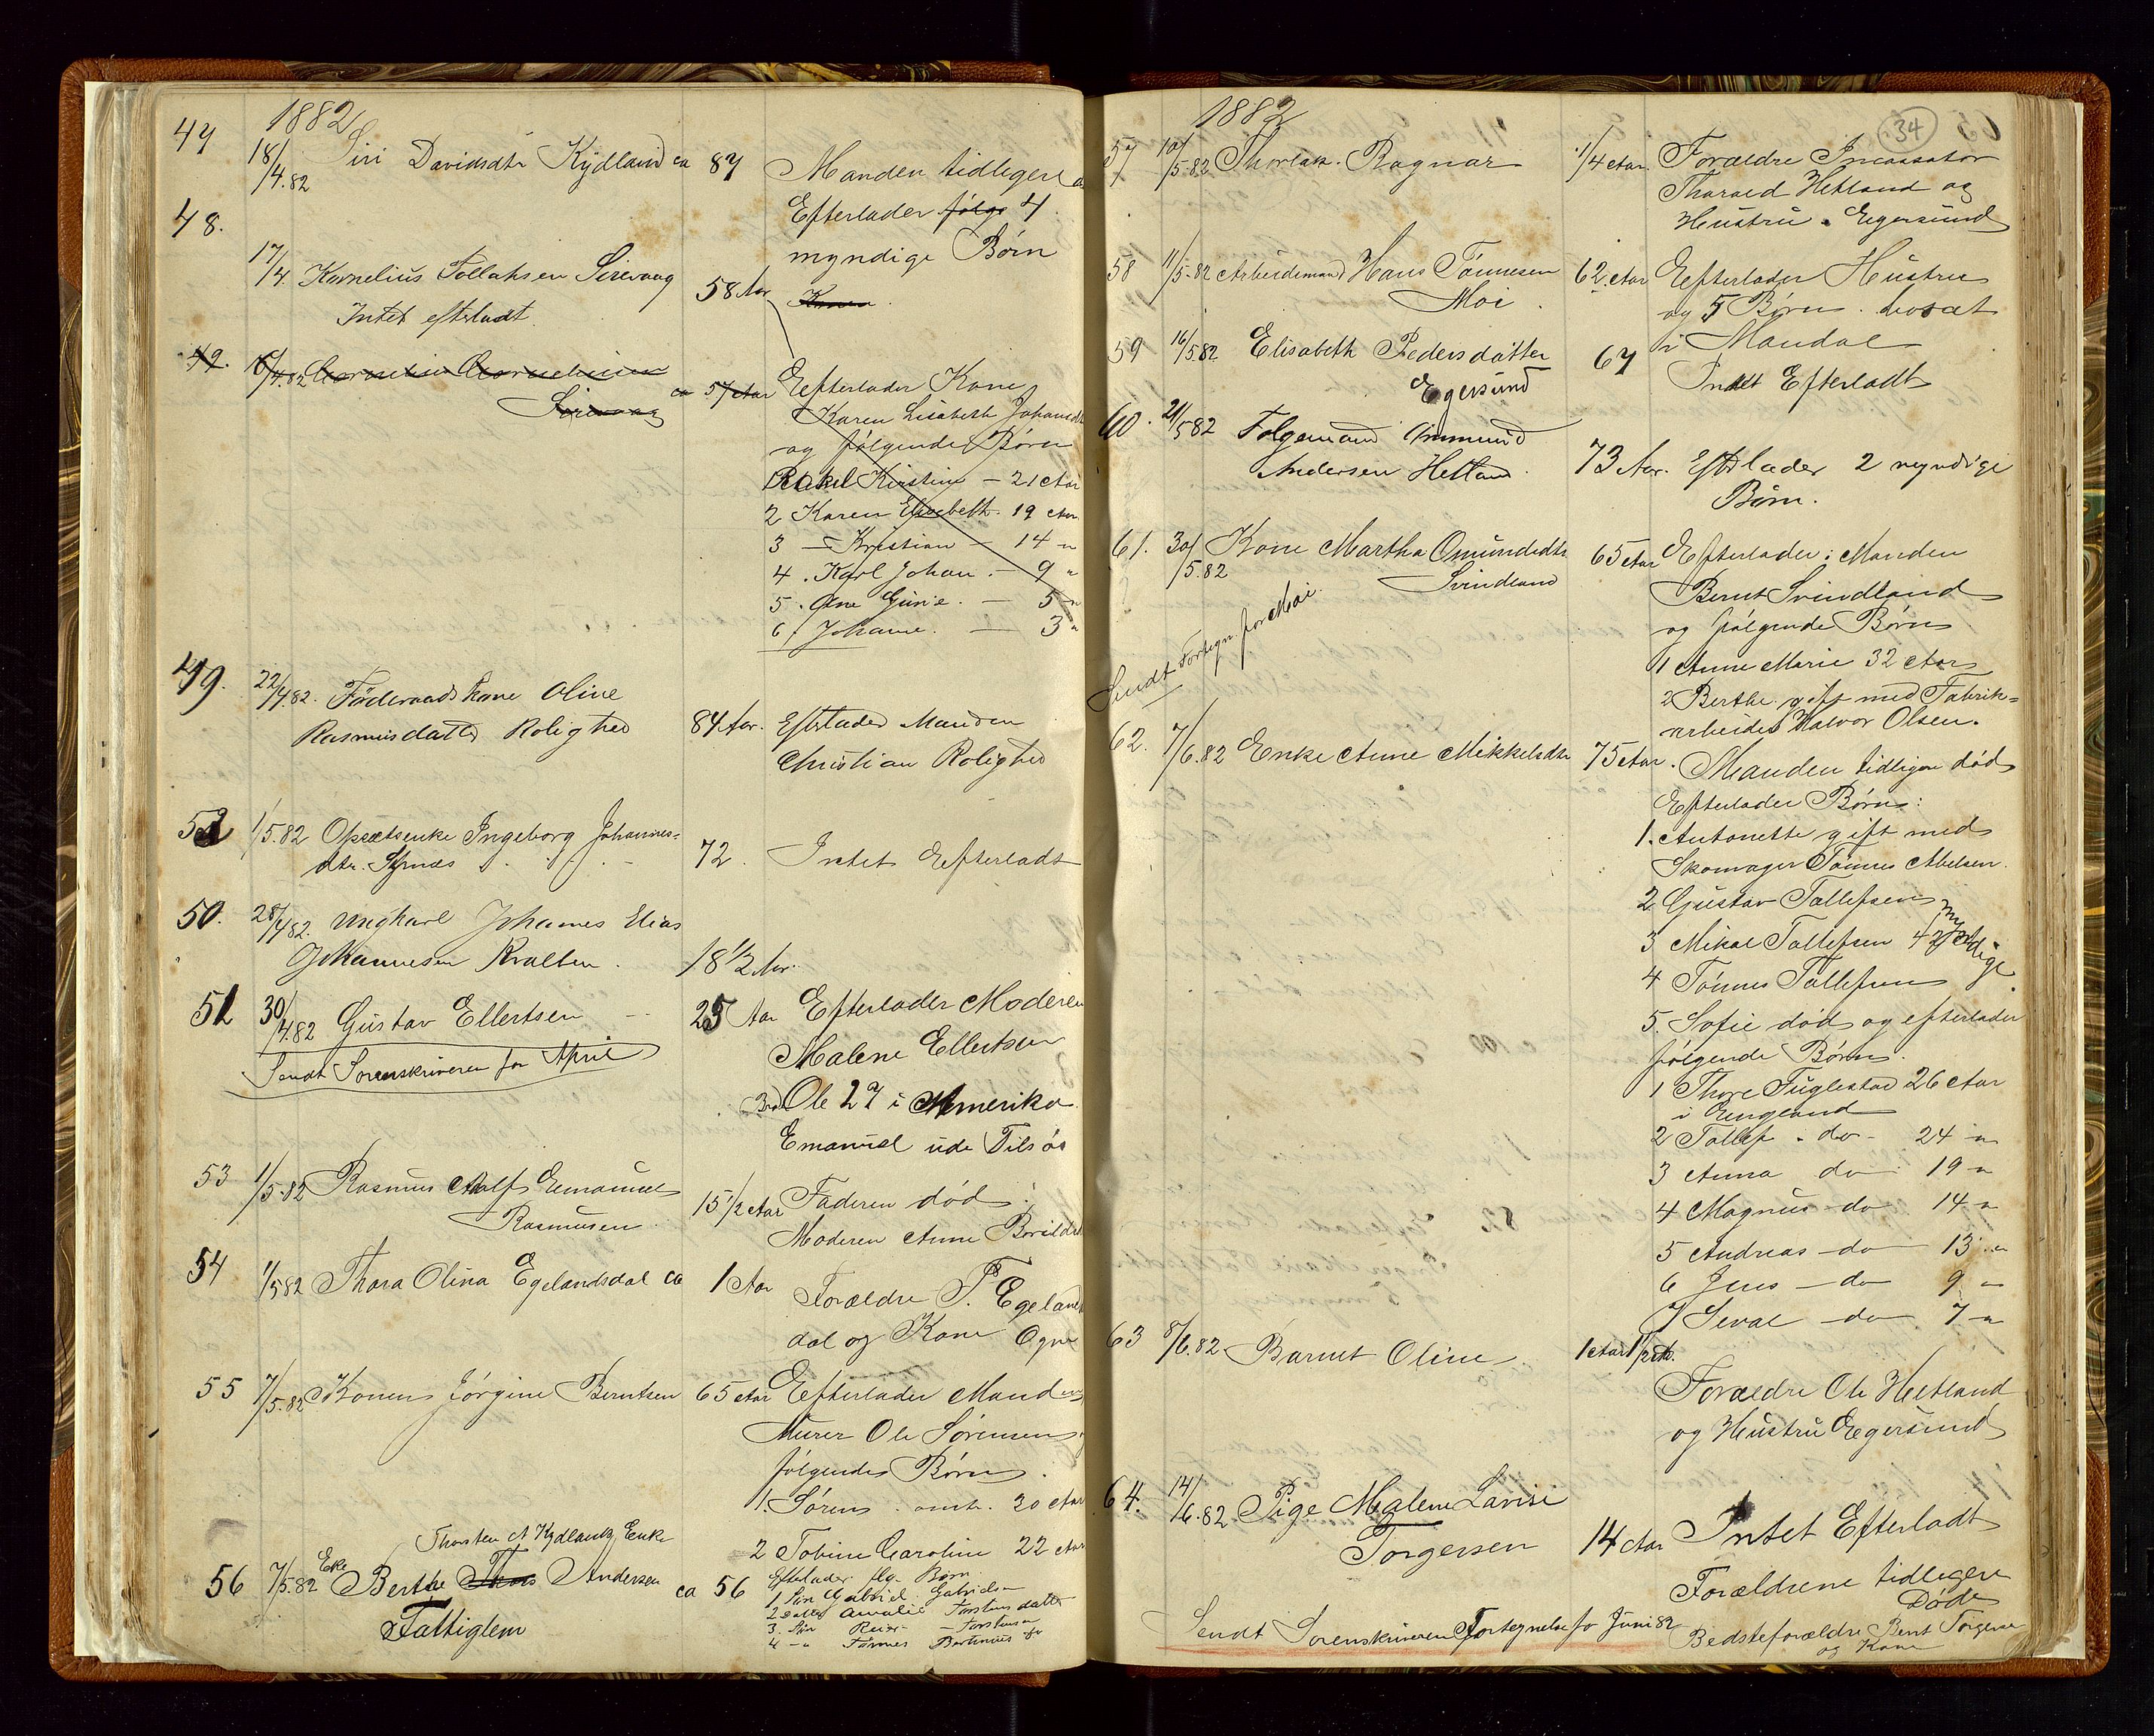 1882
47 18/4.82 Siri Davidsdtr Kydland ca 87 Manden tidligere
Efterlader følge 4
myndige Børn
48. 17/4. Kornelius Tollaksen Sirevaag 58 Aar Konen
Intet efterladt
49. 6/4.82 Cornelius Corneliusen
Sirevaag ca 57 Aar Efterlader Kone
Karen Lisabeth Johansdtr
og følgende Børn
1 Rakel Kirstine – 21 Aar
2 Karen Elisebeth. 19 Aar
3 – Kristian – 14 "
4. Karl Johan. – 9 "
5. Ane Gurie. – 5 "
6. Johanne. – 3 "
49. 22/4.82. Føderaadskone Oline
Rasmusdatter Rolighed 84 Aar. Efterlader Manden
Christian Rolighed
52 1/5.82 Opsætsenke Ingeborg Johannes-
dtr. 72. Intet Efterladt
50. 28/4.82. Ungkarl Johannes Elias
Johannesen Kvalen. 18 1/2 Aar.
51 30/4.82 Gustav Ellertsen 25 Aar Efterlader Moderen
Malene Ellertsen
Sendt Sorenskriveren for April
Brd Ole 27 i Amerika
Emanuel ude Tilsøs
53 1/5.82 Rasmus Adolf Emanuel
Rasmusen 15 1/2 Aar Faderen død.
Moderen Anne
54 1/5 82 Thora Olina Egelandsdal ca 1 Aar Forældre T. Egelands
dal og Kone Ogne
55 7/5.82 Konen Jørgine Berntsen 65 Aar Efterlader Manden
Murer Ole Sørensen
følgende Børn
1. Søren. omtr. 30 Aar
2 Tobine Caroline 22 Aar
Thorsten A Kydlands Enke
56 7/5.82 Enke Berthe Thors Andersen ca 56 Efterlader flg. Børn
Fattiglem
1 Søn Gabriel Gabrielsen
2 Datter Amalie Torstensdatter
3. Søn Reier – Torstensen
4 – " Tønnes Bertinius
34
1882
57 10/5.82 Thorlak. Ragnar 1/4 Aar. Forældre Incassator
Tharald Hetland og
Hustru. Egersund
58 11/5.82 Arbeidsmand Hans Tønnesen
Moi. 62 Aar Efterlader Hustru
og 5 Børn. bosat
i Mandal
59 16/5.82. Elisabeth Pedersdatter
Egersund 67 Intet Efterladt
60. 21/5 82 Folgemand Ommund
Andersen Hetland. 73 Aar. Efterlader 2 myndige
Børn.
61. 30/5.82 Kone Martha Omundsdtr
Svindland 65 Aar Efterlader: Manden
Bernt Svindland
og følgende Børn
1 Anne Marie 32 Aar
2 Berthe. gift med Fabrik-
arbeider Halvor Olsen.
Sendt Fortegn. for Mai.
62. 7/6.82 Enke Anne Mikkelsdtr 75 Aar. Manden tidligere død
Efterlader Børn:
1. Antonette gift med
Skomager Tønnes Abelsen.
2 Gustav Tollefsen
3 Mikal Tollefsen myndige
4 Tønnes Tollefsen
5. Sofie død og efterlader
følgende Børn.
1 Thore Fuglestad 26 Aar
i England
2 Tollef. do – 24 "
3 Anna do – 19 "
4 Magnus – do 14 "
5 Andreas – do 13 "
6 Jens – do 9 "
7 Seval – do – 7 "
63 8/6.82. Barnet Oline 1 Aar
Forældre Ole Hetland
og Hustru Egersund
64. 14/6.82 Pige Malene Lavise
Torgersen 14 Aar Intet Efterladt
Forældrene tidligere
Døde
Bedsteforældre Bernt Torgersen
og Kone
Sendt Sorenskriveren Fortegnelse for Juni 82